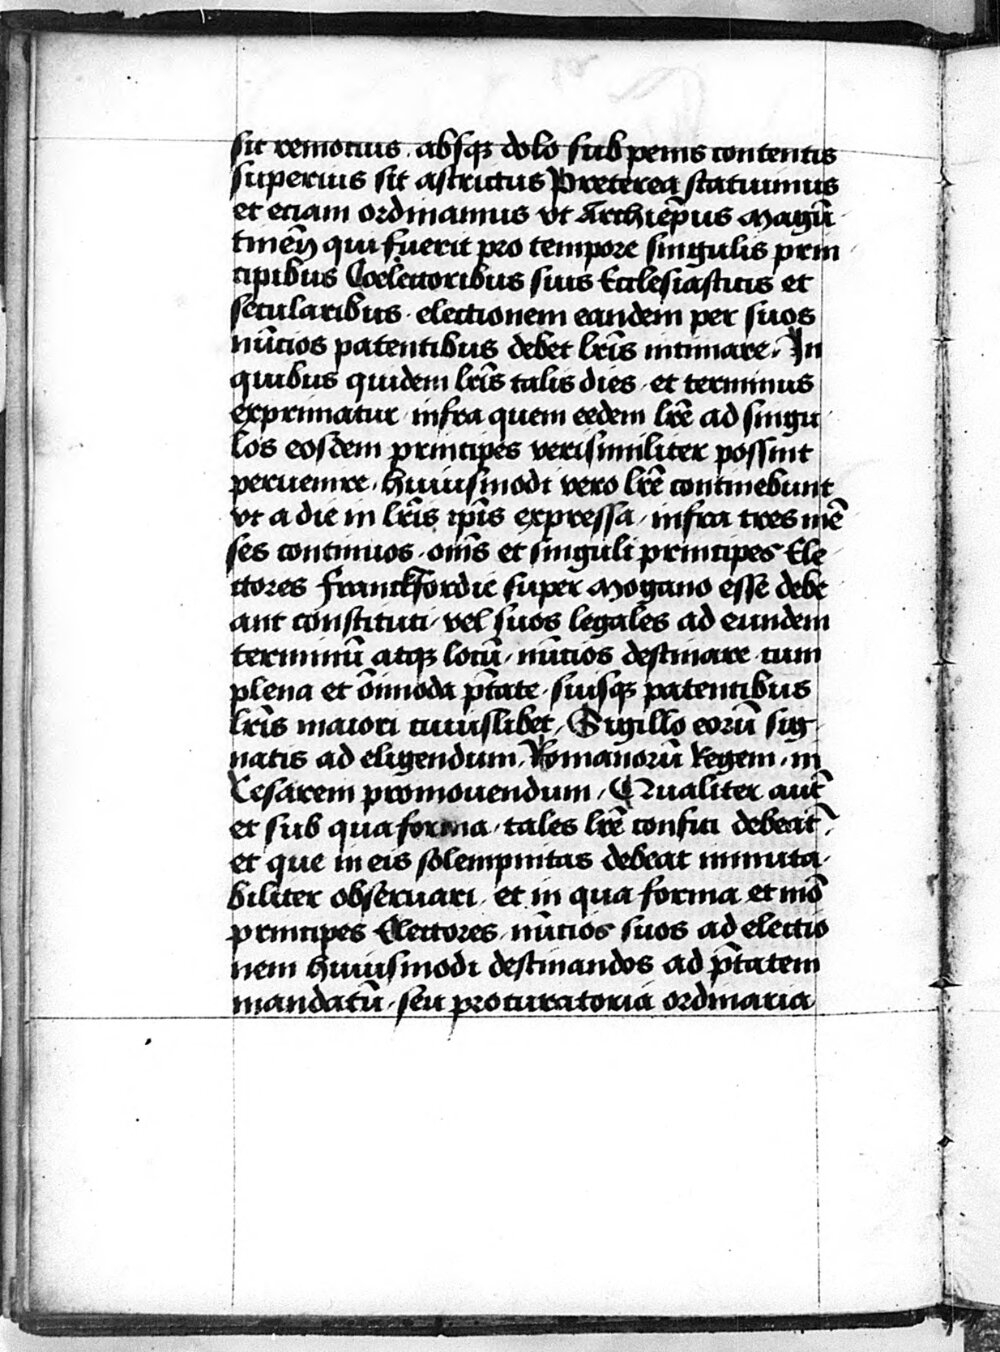 sit remotius · absqꝫ dolo sub penis contentis
superius sit astrictus Preterea statuimus
et eciam ordinamus vt Archiep̄us Magū
tineñ qui fuerit pro tempore singulis prin
cipibus Coelectoribus suis Ecclesiasticis et
secularibus · electionem eandem per suos
nūcios patentibus debet lr̄is intimare · In
quibus quidem lr̄is talis dies · et terminus
exprimatur · infra quem eedem lr̄e ad singu
los eosdem principes verisimiliter possint
peruenire · huiusmodi vero lr̄e continebunt
vt a die in lr̄is ip̄is expressa · infra tres mē
ses continuos · om̄s et singuli principes Ele
ctores Franckfordie super Mogano esse debe
ant constituti · vel suos legales ad eundem
terminū atqꝫ locū · nūcios destinare cum
plena et ōimoda ptāte · suisqꝫ patentibus
lr̄is maiori cuiuslibet · Sigillo eorū sig
natis ad eligendum Romanorū Regem · in
Cesarem promouendum · Qualiter aut̄
et sub qua forma · tales lr̄e confici debeāt
et que in eis solempnitas debeat inmuta
biliter obseruari · et in qua forma et mō
principes Electores · nūcios suos ad electio
nem huiusmodi destinandos ad ptātem
mandatū · seu procuratoria ordinaria